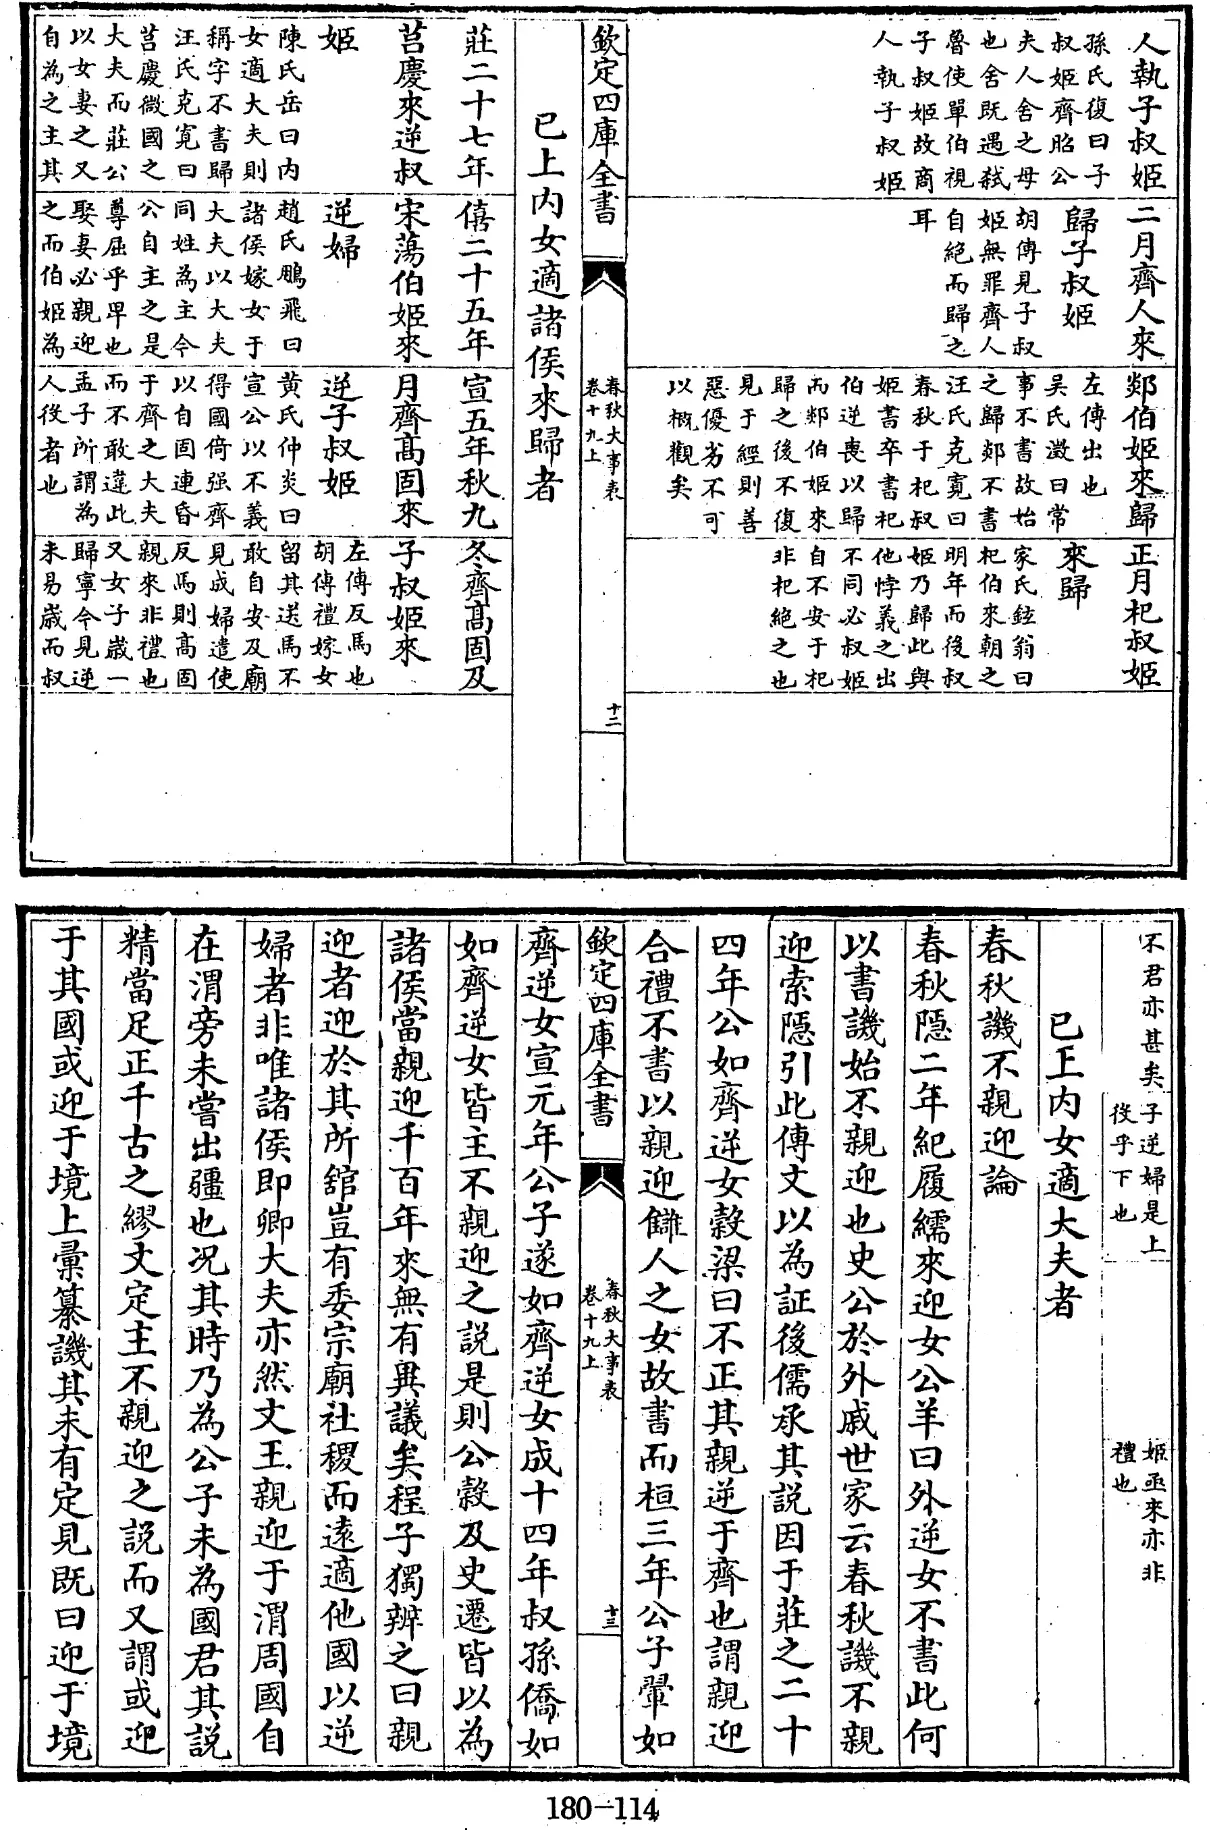 人執子叔姬
孫氏復曰子
叔姬齊昭公
夫人舍之母
也舍既遇弒
魯使單伯視
子叔姬故商
人執子叔姬
二月齊人來
歸子叔姬
胡傳見子叔
姬無罪齊人
自絕而歸之
耳
郯伯姬來歸
左傳出也
吴氏澂曰常
事不書故始
之歸郯不書
汪氏克寛曰
春秋于杞叔
姬書卒書杞
伯逆喪以歸
而郯伯姬來
歸之後不復
見于經則善
惡優劣不可
以概觀矣
正月杞叔姬
來歸
家氏鉉翁曰
杞伯來朝之
明年而後叔
姬乃歸此與
他悖義之出
不同必叔姬
自不安于杞
非杞絕之也
欽定四庫全書
春秋大事表
卷十九上
十二
已上内女適諸侯來歸者
莊二十七年
莒慶來逆叔
姬
陳氏岳曰内
女適大夫則
稱字不書歸
汪氏克寛曰
莒慶微國之
大夫而莊公
以女妻之又
自為之主其
僖二十五年
宋蕩伯姬來
逆婦
趙氏鵬飛曰
諸侯嫁女于
大夫以大夫
同姓為主今
公自主之是
尊屈乎卑也
娶妻必親迎
之而伯姬為
宣五年秋九
月齊高固來
逆子叔姬
黄氏仲炎曰
宣公以不義
得國倚强齊
以自固連昏
于齊之大夫
而不敢違此
孟子所謂為
人役者也
冬齊高固及
子叔姬來
左傳反馬也
胡傳禮嫁女
留其送馬不
敢自安及廟
見成婦遣使
反馬則高固
親來非禮也
又女子歲一
歸寧今見逆
未易歲而叔
不君亦甚矣
子逆婦是上
役乎下也
姬亟來亦非
禮也
已上内女適大夫者
春秋譏不親迎論
春秋隱二年紀履繻來迎女公羊曰外逆女不書此何
以書譏始不親迎也史公於外戚世家云春秋譏不親
迎索隱引此傳文以為証後儒承其説因于莊之二十
四年公如齊逆女穀梁曰不正其親逆于齊也謂親迎
合禮不書以親迎讎人之女故書而桓三年公子翬如
欽定四庫全書
春秋大事表
卷十九上
十三
齊逆女宣元年公子遂如齊逆女成十四年叔孫僑如
如齊逆女皆主不親迎之説是則公穀及史遷皆以為
諸侯當親迎千百年來無有異議矣程子獨辨之曰親
迎者迎於其所舘豈有委宗廟社稷而遠適他國以逆
婦者非唯諸侯即卿大夫亦然文王親迎于渭周國自
在渭旁未嘗出疆也况其時乃為公子未為國君其説
精當足正千古之繆文定主不親迎之説而又謂或迎
于其國或迎于境上彙纂譏其未有定見既曰迎于境
180-114